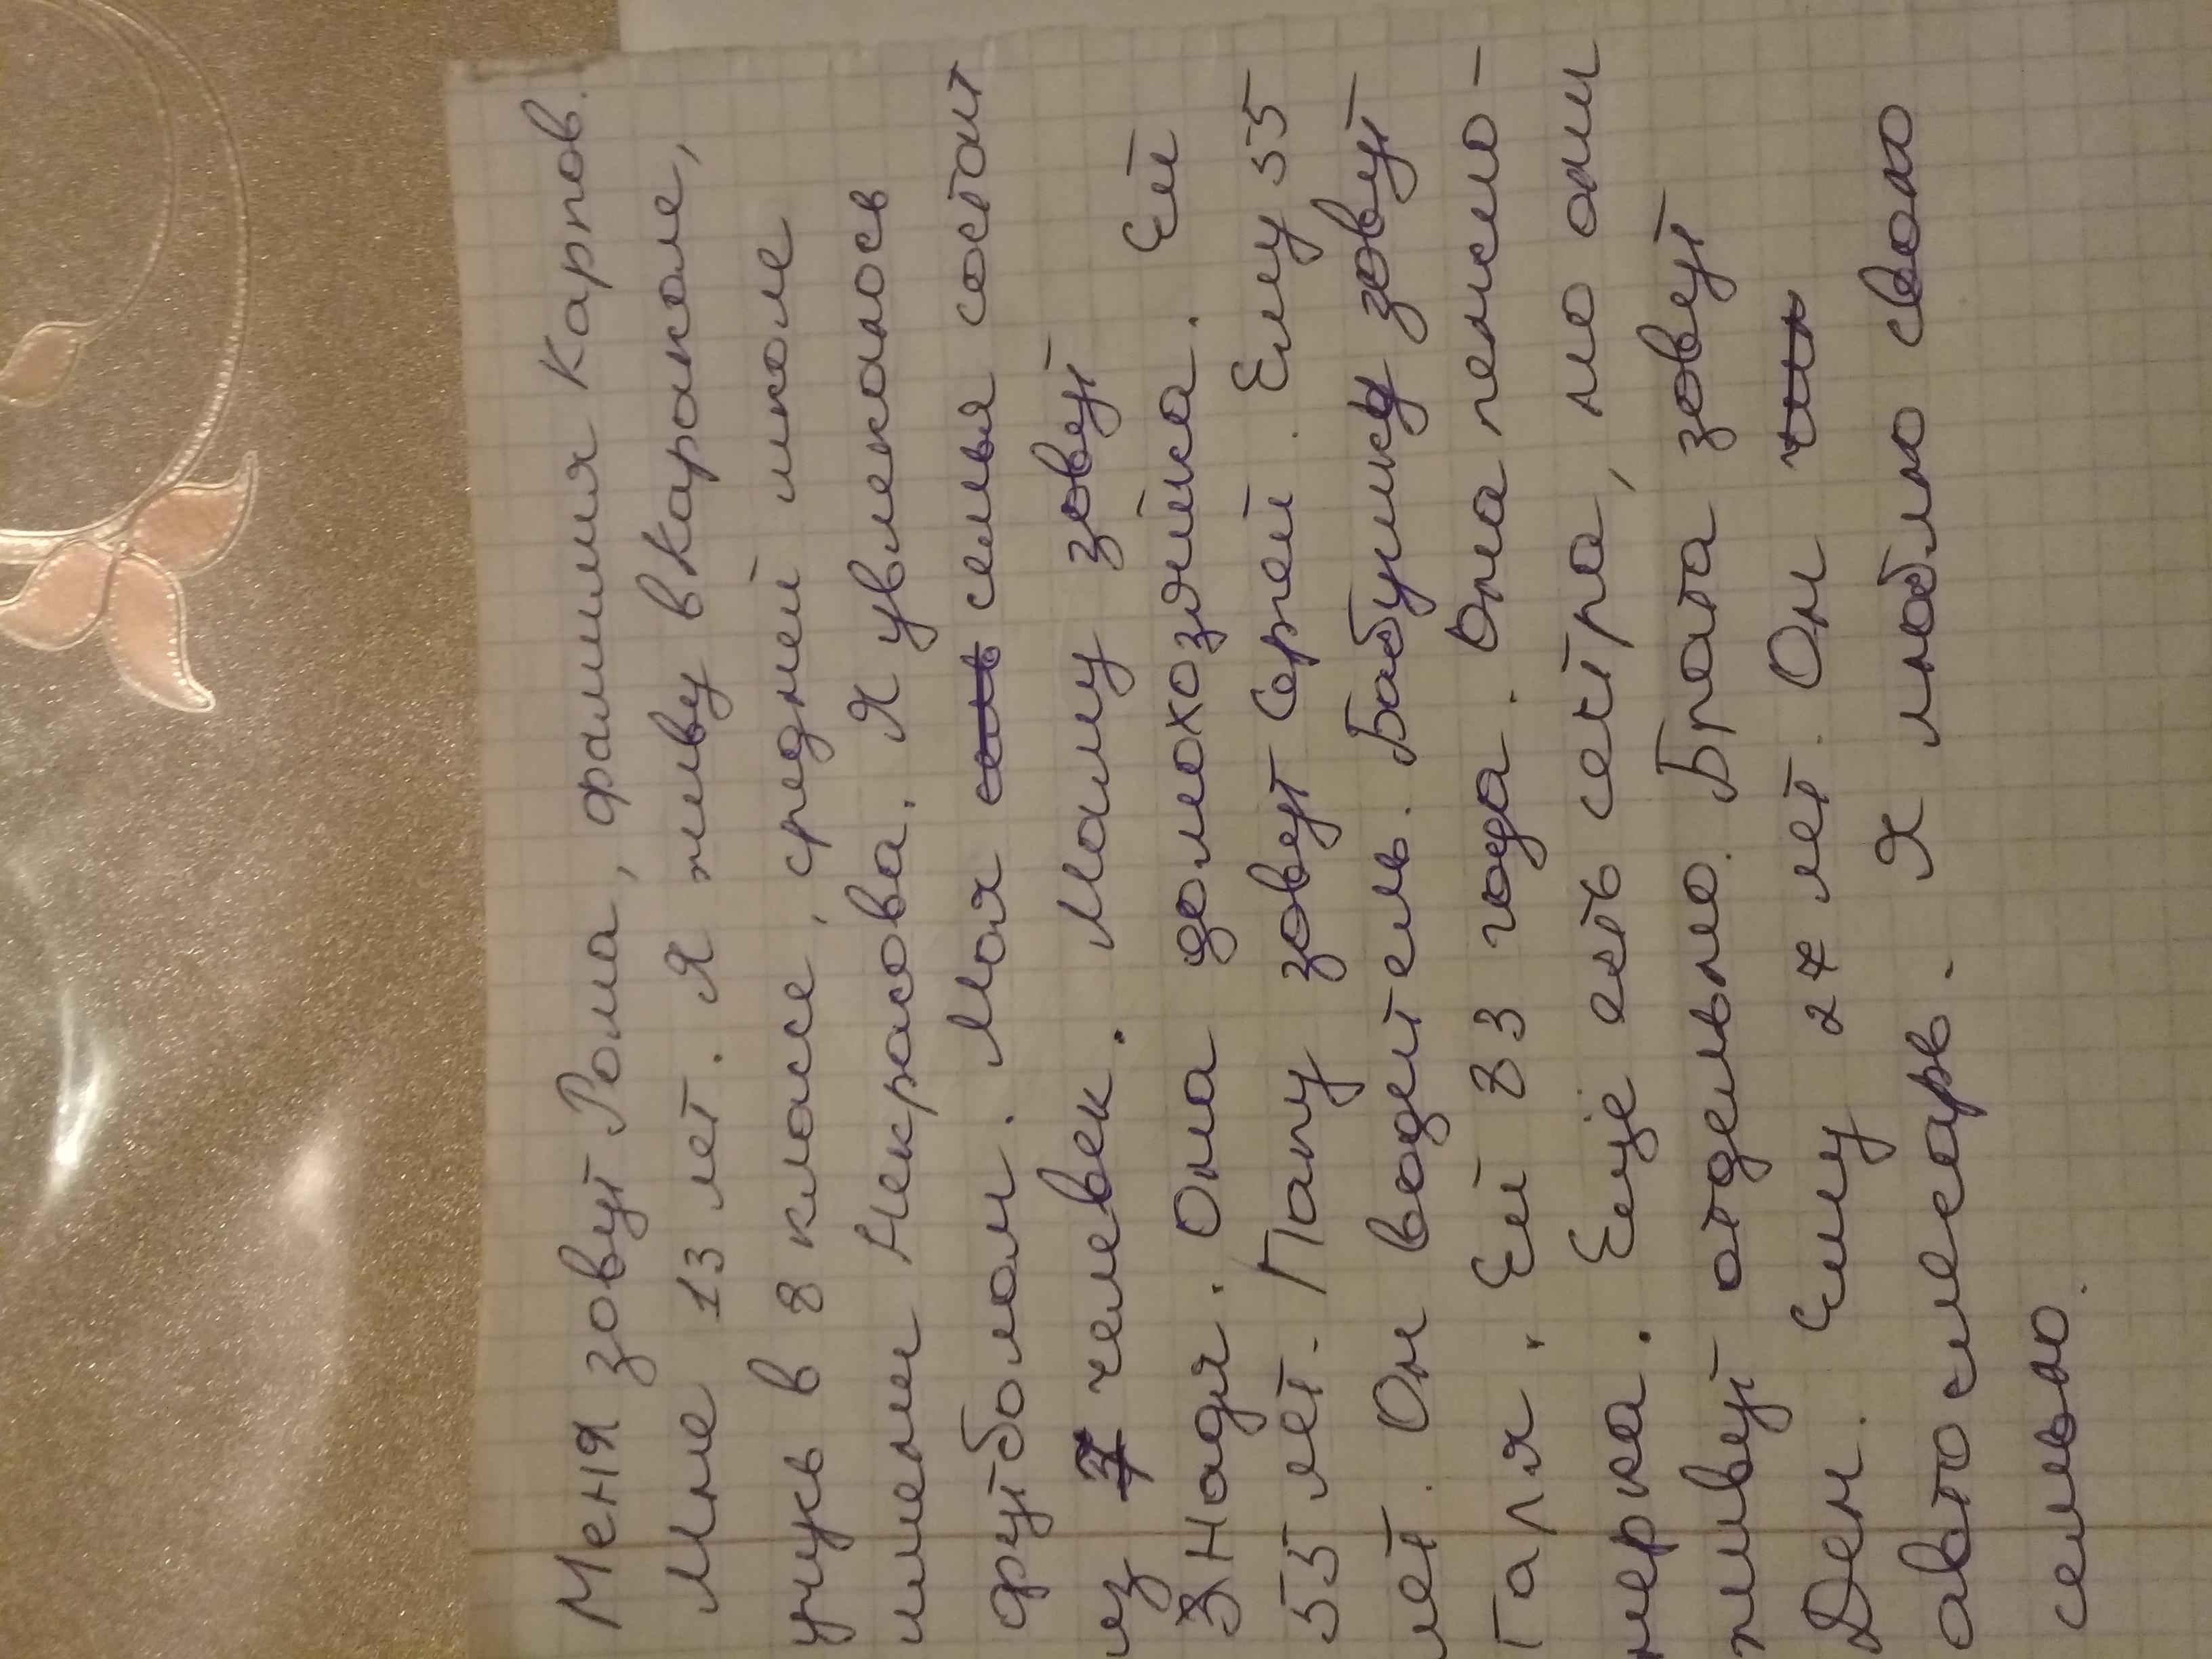 Меня зовут Рома, фамилия Карпов.
Мне 13 лет. Я живу в Караколе,
учусь в 8 класе, средней школе
имени Некрасова. Я увлекаюсь
футболом. Моя семья состоит
из 7 человек. Маму зовут Ей
Надя. Она домохозяйка.
55 лет. Папу зовут Сергей. Ему 55
лет. Он водитель. Бабушку зовут
Галя. Ей 83 года. Она пенсио-
нерка. Ещё есть сестра, но они
живут отдельно. Брата зовут
Ден. Ему 27 лет. Он
автослесарь. Я люблю свою
семью.